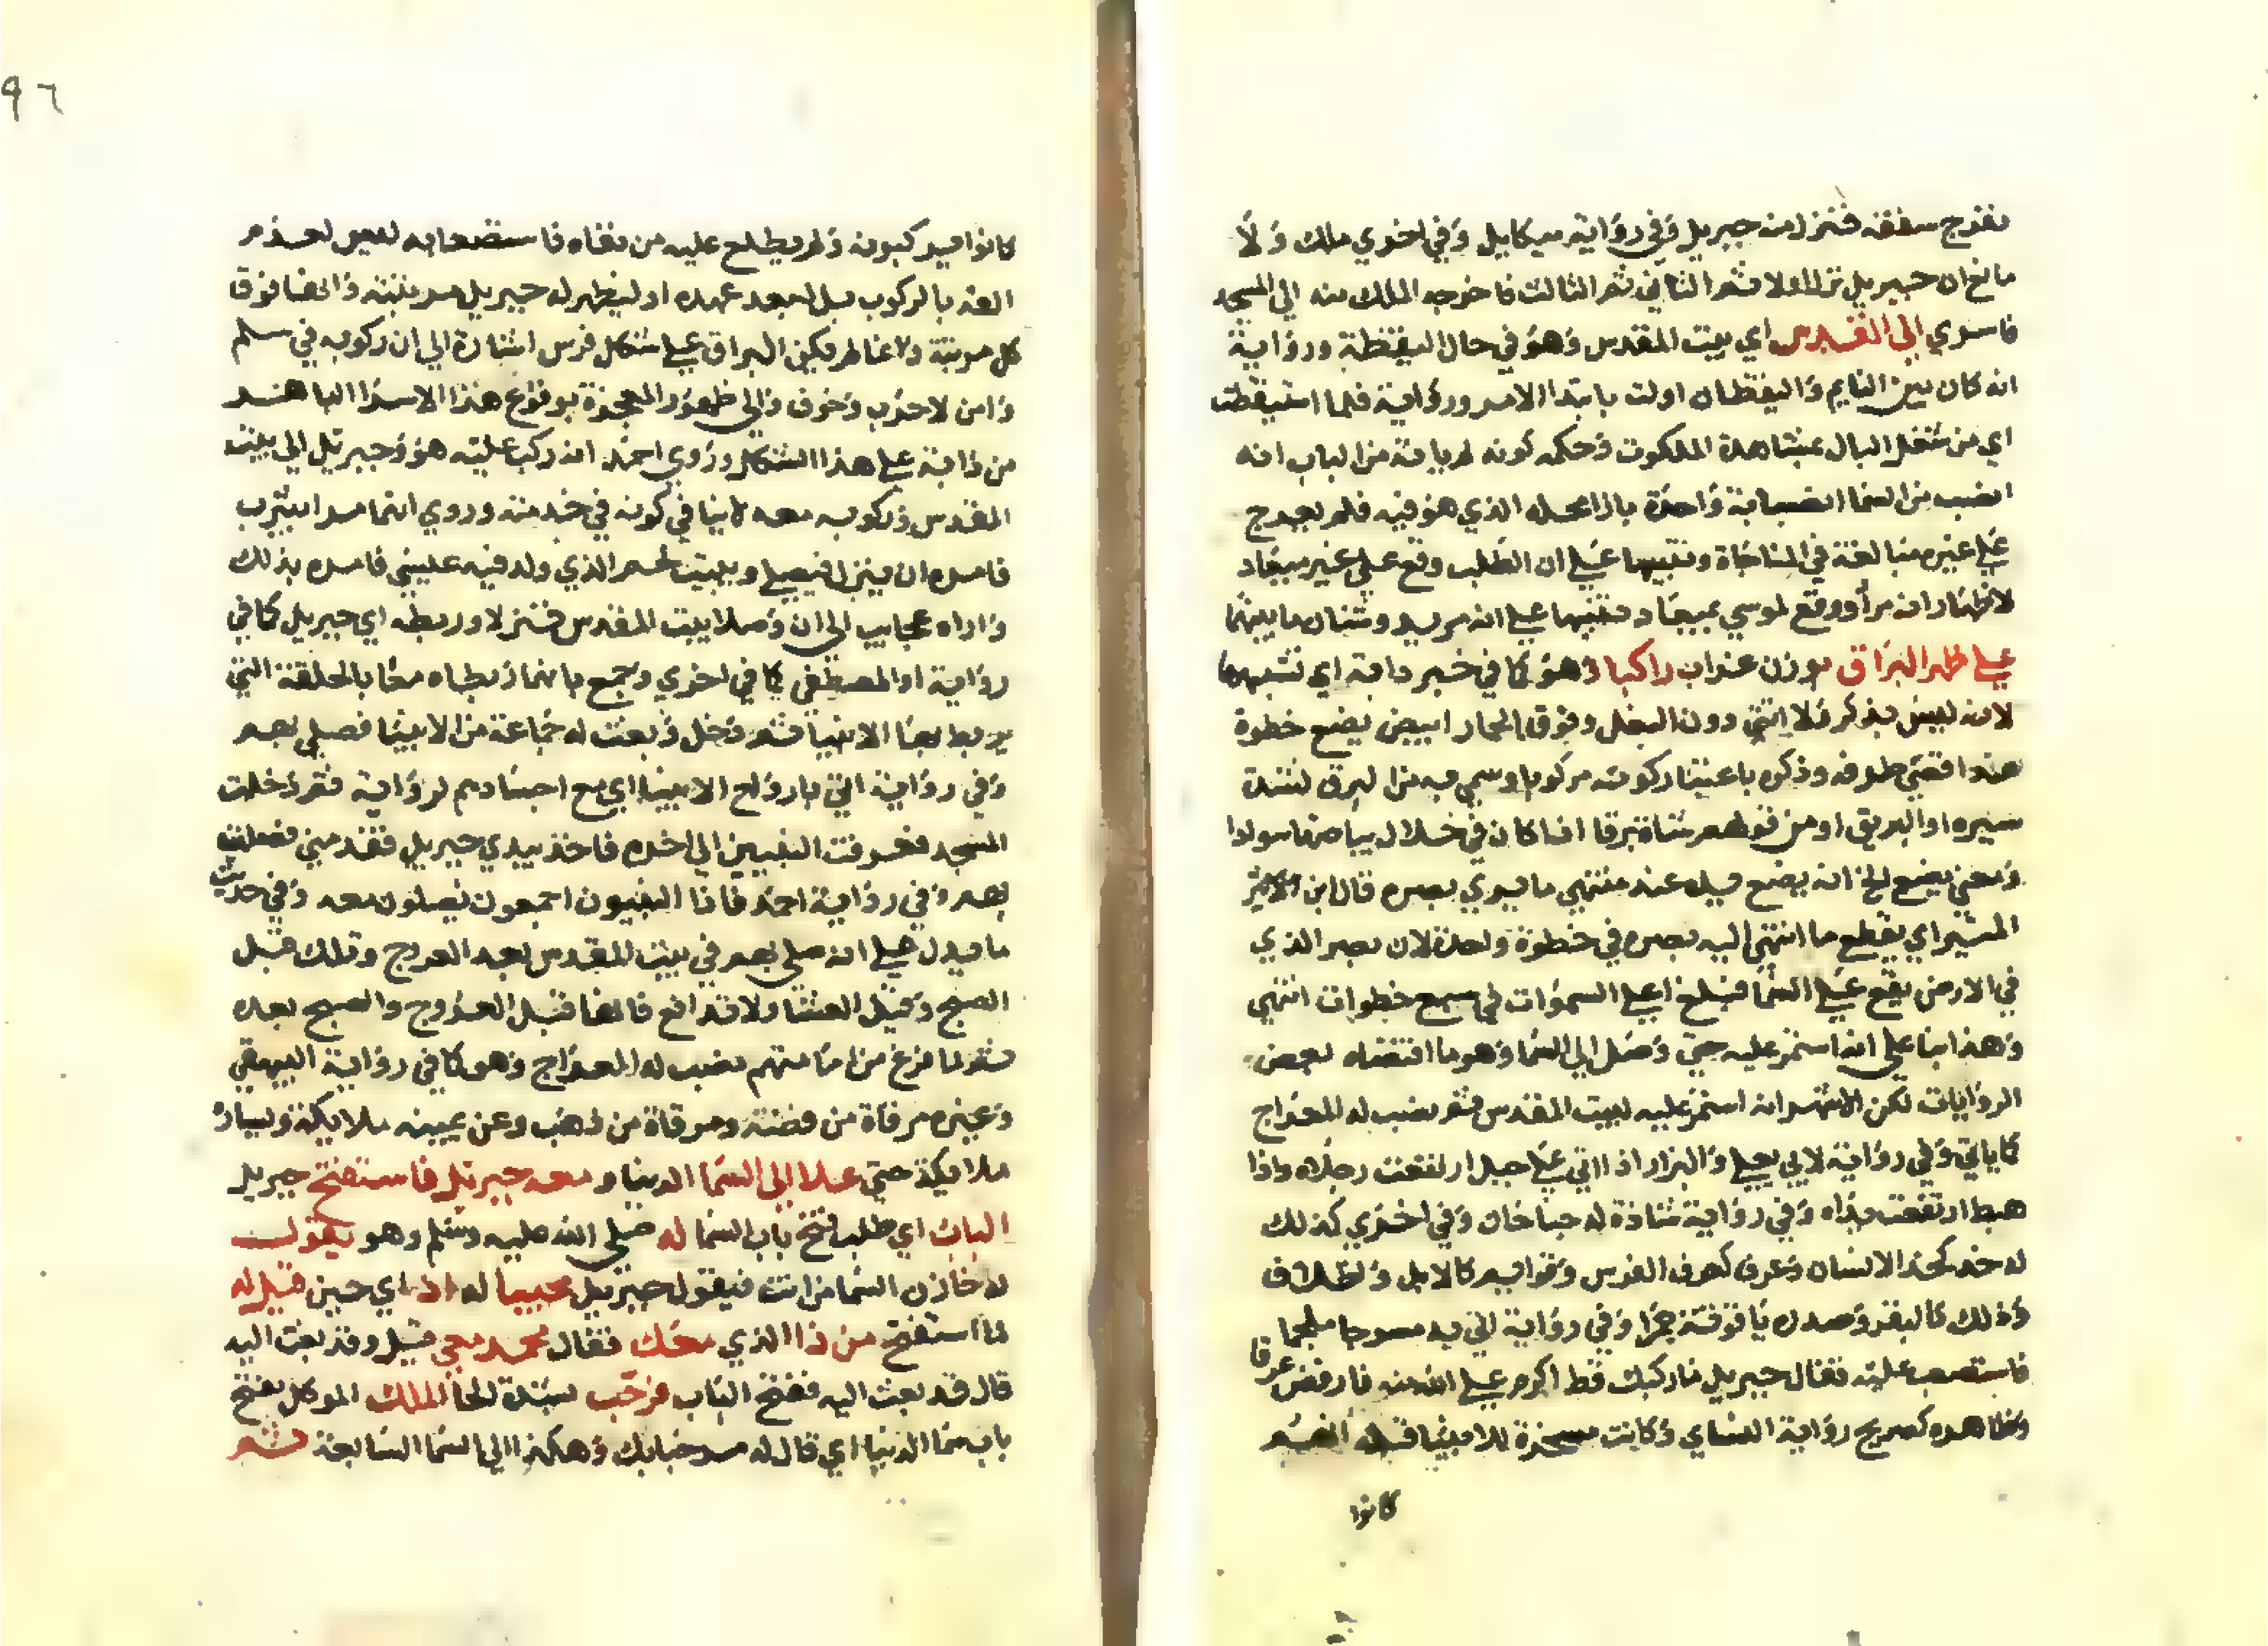 تفرج سقفه فنزل منه جبريل وفي رواية ميكايل وفي اخري ملك ولا
مانع ان جبريل نزل اولا ثم الثاني ثم الثالث فاخرجه الملك منه الي المسجد
فاسري الي القدس اي بيت المقدس وهو في حال اليقظة ورواية
انه كان بين النايم واليقظان اولت بابتدا الامر ورواية فلما استيقظت
اي من شغل البال بمشاهدة الملكوت وحكمة كونه لم ياته من الباب انه
انصب من السما انصبابة واحدة بازا محله الذي هو فيه فلم يعرج
علي غيره مبالغة في المناجاة وتنبيها علي ان الطلب وقع علي غير ميعاد
لاظهار انه مراد ووقع لموسي بميعاد تنبيها علي انه مريد وشتان ما بينهما
علي ظهر البراق بوزن غراب راكبا وهو كما في خبر دابة اي تشبهها
لانه ليس بذكر ولا انثي دون البغل وفوق الحمار ابيض يضع خطوة
عند اقصي طرفه وذكره باعتبار كونه مركوبا وسمي به من البرق لشدة
سيره او البريق او من قولهم شاة برقا اذا كان في خلال بياضها سوادا
ومعني يضع الخ انه يضع رجله عند منتهي ما يري بصره قال ابن الاثير
المنير اي يقطع ما انتهي اليه بصره في خطوة واحدة لان بصر الذي
في الارض يقع علي السما فبلغ اعلي السموات في سبع خطوات انتهي
وهذا بنا علي انه استمر عليه حتي وصل الي السما وهو ما اقتضاه بعض
الروايات لكن الاشهر انه استمر عليه لبيت المقدس ثم نصب له المعراج
كما ياتي وفي رواية لابي يعلي والبزار اذا اتي علي جبل ارتفعت رجلاه واذا
هبط ارتفعت يداه وفي رواية شاذة له جناحان وفي اخري كذلك
له خد كخد الانسان وعرف كعرف الفرس وقوايم كالابل واظلاف
وذلك كالبقر وصدره ياقوتة حمرا وفي رواية اتي به مسرجا ملجما
فاستصعب عليه فقال جبريل ما ركبك قط اكرم علي الله منه فارفض عرقا
وظاهره كصريح رواية النساي وكانت مسخرة للانبيا قبله انهم
كانوا
٩٦
كانوا يركبونه ولم يطلع عليه من نفاه فاستصعابه ليس لعدم
الفه بالركوب بل لبعد عهده او ليظهر له جبريل مرتبته وانها فوق
كل مرتبة وانما لم يكن البراق علي شكل فرس اشارة الي ان ركوبه في سلم
وامن لا حرب وخوف والي ظهور المعجزة بوقوع هذا الاسرا الباهر
من دابة علي هذا الشكل وروي احمد انه ركب عليه هو وجبريل الي بيت
المقدس وركوبه معه لا ينافي كونه في خدمته وروي انهما مرا بيثرب
فامره ان ينزل فيصلي وببيت لحم الذي ولد فيه عيسي فامره بذلك
واراه عجايب الي ان وصلا بيت المقدس فنزلا وربطه اي جبريل كما في
رواية او المصطفي كما في اخري وجمع بانهما ربطاه معا بالحلقة التي
يربط بها الانبيا ثم دخل وبعث له جماعة من الانبيا فصلي بهم
وفي رواية اتي بارواح الانبيا اي مع اجسادهم لرواية ثم دخلت
المسجد فعرفت النبيين الي اخره فاخذ بيدي جبريل فقدمني فصليت
بهم وفي رواية احمد فاذا النبيون اجمعون يصلون معه وفي حديث
ما يدل علي انه صلي بهم في بيت المقدس بعد العروج وتلك قبل
الصبح وقيل العشا ولا تدافع فالعشا قبل العروج والصبح بعده
ثم لما فرغ من امامتهم نصب له المعراج وهو كما في رواية البيهقي
وغيره مرقاة من فضة ومرقاة من ذهب وعن يمينه ملايكة ويساره
ملايكة حتي علا الي السما الدنيا ومعه جبريل فاستفتح جبريل
الباب اي طلب فتح باب السما له صلي الله عليه وسلم وهو يقول
له خازن السما من انت فيقول جبريل مجيبا له اذ اي حين قيل له
لما استفتح من ذا الذي معك فقال محمد معي قيل وقد بعث اليه
قال قد بعث اليه ففتح الباب فرحب الملك الموكل بفتح
باب سما الدنيا اي قال له مرحبا بك وهكذا الي السما السابعة ثم